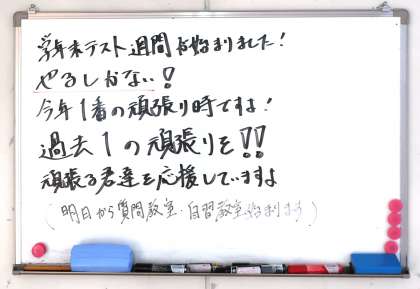 学年末テスト週間が始まりました!
やるしかない!
今年1番の頑張り時ですよ!
過去1の頑張りを!!
頑張る君達を応援していますよ
(明日から質問教室・自習教室始まります)